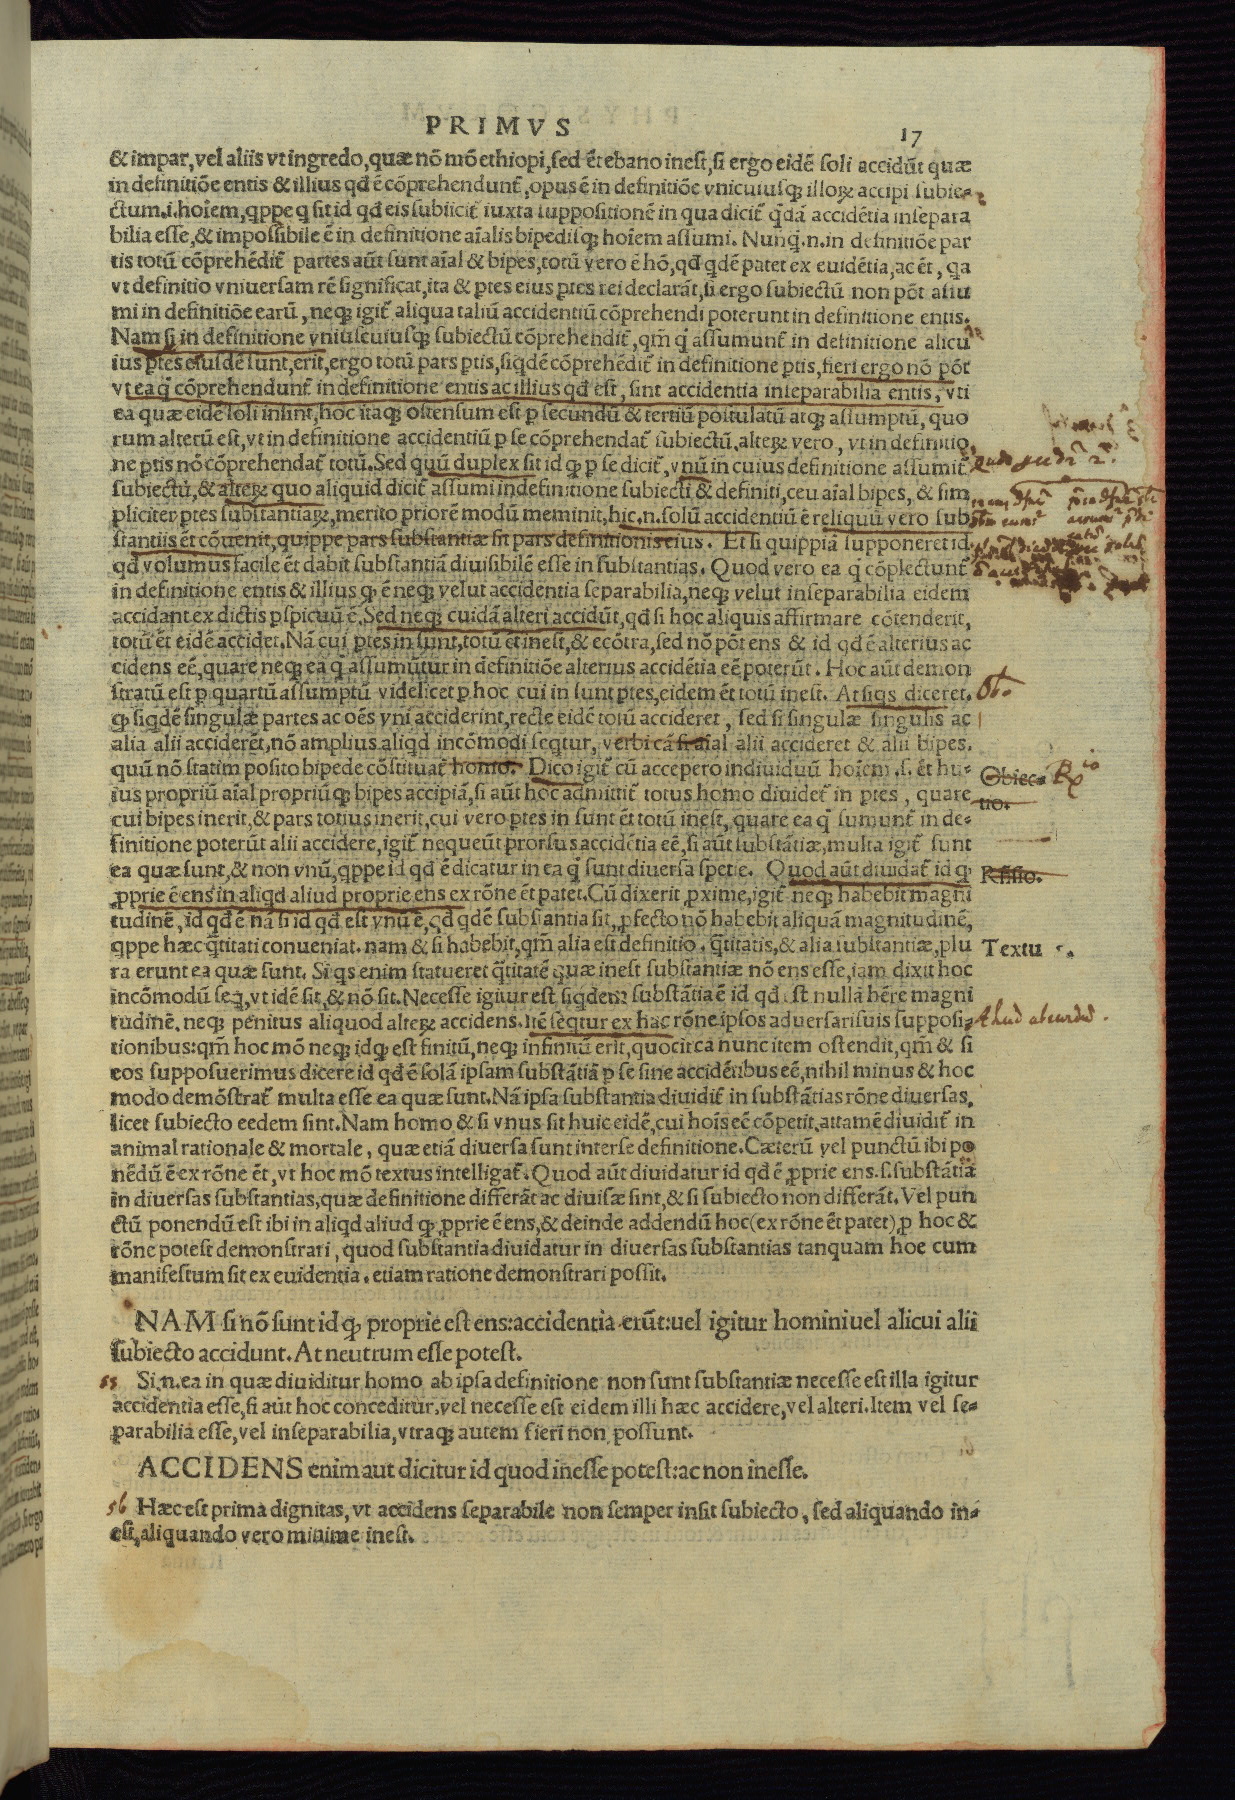 PRIMVS
17
& impar, vel aliis vt ingredo, quæ nõ mõ ethiopi, sed ẽt ebano inest, si ergo eidẽ soli accidũt quæ
in definitiõe entis & illius qđ ẽ cõprehendunt̃, opus ẽ in definitiõe vnicuiusqꝫ illoꝝ accipi subie-
ctum.i.hoĩem, qppe q sit id qđ eis subiicit̃ iuxta suppositionẽ in qua dicit̃ q̃dã accidẽtia insepara
bilia esse, & impossibile ẽ in definitione aĩalis bipedisqꝫ hoĩem assumi. Nunq̃.n.in definitiõe par
tis totũ cõprehẽdit̃ partes aũt sunt aĩal & bipes, totũ vero ẽ hõ, qđ qdẽ patet ex euidẽtia, ac ẽt, qa
vt definitio vniuersam rẽ significat, ita & ptes eius ptes rei declarãt, si ergo subiectũ non põt assu
mi in definitiõe earũ, neqꝫ igit̃ aliqua taliũ accidentiũ cõprehendi poterunt in definitione entis.
Nam si in definitione vniuscuiusqꝫ subiectũ cõprehendit̃, qm̃ q̃ assumunt̃ in definitione alicu
ius ptes eiusdẽ sunt, erit, ergo totũ pars ptis, siqdẽ cõprehẽdit̃ in definitione ptis, fieri ergo nõ põt
vt ea q̃ cõprehendunt̃ in definitione entis ac illius qđ est, sint accidentia inseparabilia entis, vti
ea quæ eidẽ soli insint, hoc itaqꝫ ostensum est p secundũ & tertiũ postulatũ atqꝫ assumptũ, quo
rum alterũ est, vt in definitione accidentiũ p se cõprehendat̃ subiectũ, alteꝝ vero, vt in definitio
ne ptis nõ cõprehendat̃ totũ. Sed quũ duplex sit id qꝫ p se dicit̃, vnũ in cuius definitione assumit̃
subiectũ, & alteꝝ quo aliquid dicit̃ assumi indefinitione subiecti & definiti, ceu aĩal bipes, & sim
pliciter ptes substantiaꝝ, merito priorẽ modũ meminit, hic.n.solũ accidentiũ ẽ reliquũ vero sub
stantiis ẽt cõuenit, quippe pars substantiæ sit pars definitionis eius. Et si quippiã supponeret id
qđ volumus facile ẽt dabit substantiã diuisibilẽ esse in substantias. Quod vero ea q̃ cõplectunt̃
in definitione entis & illius qꝫ ẽ neqꝫ velut accidentia separabilia, neqꝫ velut inseparabilia eidem
accidant ex dictis pspicuũ ẽ. Sed neqꝫ cuidã alteri accidũt, qđ si hoc aliquis affirmare cõtenderit,
totũ ẽt eidẽ accidet. Nã cui ptes in sunt, totũ ẽt inest, & ecõtra, sed nõ põt ens & id qđ ẽ alterius ac
cidens eẽ, quare neqꝫ ea q̃ assumũtur in definitiõe alterius accidẽtia eẽ poterũt. Hoc aũt demon
stratũ est p quartũ assumptũ videlicet p hoc cui in sunt ptes, eidem ẽt totũ inest. At siqs diceret.
qꝫ siqdẽ singulæ partes ac oẽs vni acciderint, recte eidẽ totũ accideret, sed si singulæ singulis ac
alia alii acciderẽt, nõ amplius aliqd incõmodi seqtur, verbi cã si aĩal alii accideret & alii bipes.
quũ nõ statim posito bipede cõstituat̃ homo. Dico igit̃ cũ accepero indiuiduũ hoĩem .s. ẽt hu-
ius propriũ aĩal propriũqꝫ bipes accipiã, si aũt hoc admittit̃ totus homo diuidet̃ in ptes, quare
cui bipes inerit, & pars totius inerit, cui vero ptes in sunt ẽt totũ inest, quare ea q̃ sumunt̃ in de-
finitione poterũt alii accidere, igit̃ nequeũt prorsus accidẽtia eẽ, si aũt substãtiæ, multa igit̃ sunt
ea quæ sunt, & non vnũ, qppe id qđ ẽ dicatur in ea q̃ sunt diuersa specie. Quod aũt diuidat̃ id qꝫ
pprie ẽ ens in aliqd aliud proprie ens ex rõne ẽt patet. Cũ dixerit pxime, igit̃ neqꝫ habebit magni
tudinẽ, id qđ ẽ nã si id qđ est vnũ ẽ, qđ qdẽ substantia sit, pfecto nõ habebit aliquã magnitudinẽ,
qppe hæc q̃titati conueniat. nam & si habebit, qm̃ alia est definitio q̃titatis, & alia substantiæ, plu
ra erunt ea quæ sunt. Si qs enim statueret q̃titatẽ quæ inest substantiæ nõ ens esse, iam dixit hoc
incõmodũ seq, vt idẽ sit, & nõ sit. Necesse igitur est siqdem substãtia ẽ id qđ est nullã hẽre magni
tudinẽ, neqꝫ penitus aliquod alteꝝ accidens. Itẽ seqtur ex hac rõne ipsos aduersari suis supposi-
tionibus: qm̃ hoc mõ neqꝫ idqꝫ est finitũ, neqꝫ infinitũ erit, quocirca nunc item ostendit, qm̃ & si
eos supposuerimus dicere id qđ ẽ solã ipsam substãtiã p se sine accidẽtibus eẽ, nihil minus & hoc
modo demõstrat̃ multa esse ea quæ sunt. Nã ipsa substantia diuidit̃ in substãtias rõne diuersas,
licet subiecto eedem sint. Nam homo & si vnus sit huic eidẽ, cui hoĩs eẽ cõpetit, attamẽ diuidit̃ in
animal rationale & mortale, quæ etiã diuersa sunt interse definitione. Cæterũ vel punctũ ibi po
nẽdũ ẽ ex rõne ẽt, vt hoc mõ textus intelligat̃. Quod aũt diuidatur id qđ ẽ pprie ens .s. substãtia
in diuersas substantias, quæ definitione differãt ac diuisæ sint, & si subiecto non differãt. Vel pun
ctũ ponendũ est ibi in aliqd aliud qꝫ pprie ẽ ens, & deinde addendũ hoc (ex rõne ẽt patet) p hoc &
rõne potest demonstrari, quod substantia diuidatur in diuersas substantias tanquam hoc cum
manifestum sit ex euidentia. etiam ratione demonstrari possit.
NAM si nõ sunt id qꝫ proprie est ens: accidentia erũt: uel igitur homini uel alicui alii
subiecto accidunt. At neutrum esse potest.
55 Si.n. ea in quæ diuiditur homo ab ipsa definitione non sunt substantiæ necesse est illa igitur
accidentia esse, si aũt hoc conceditur. vel necesse est eidem illi hæc accidere, vel alteri. Item vel se-
parabilia esse, vel inseparabilia, vtraqꝫ autem fieri non possunt.
ACCIDENS enim aut dicitur id quod inesse potest: ac non inesse.
56 Hæc est prima dignitas, vt accidens separabile non semper insit subiecto, sed aliquando in-
est, aliquando vero minime inest.
Ob.
Obiec-
tio.
Rx io
Rñsio.
Textu
Aliud absurdũ.